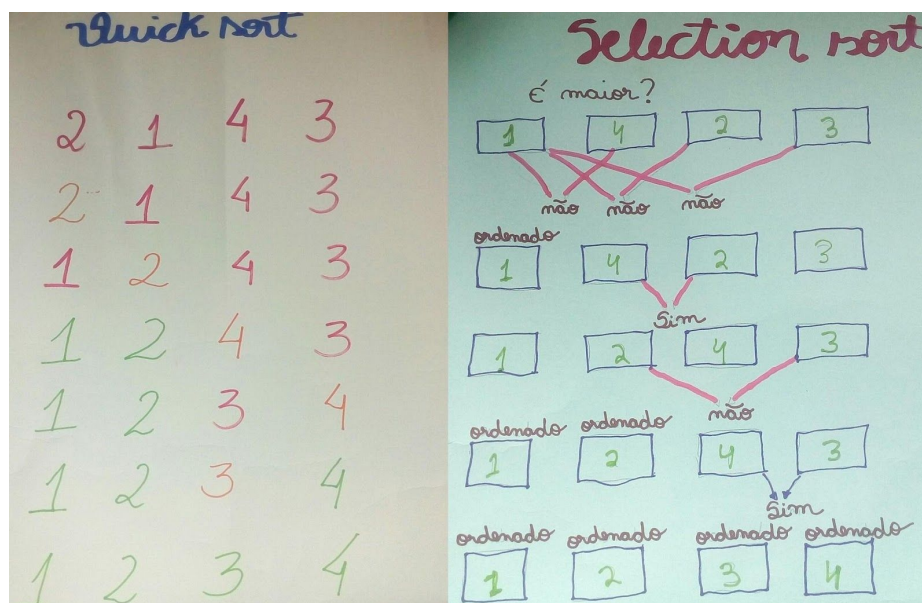 Quick sort
2 1 4 3
2 1 4 3
1 2 4 3
1 2 4 3
1 2 3 4
1 2 3 4
1 2 3 4
Selection sort
É maior?
1 4 2 3
não não não
ordenado
1 4 2 3
Sim
1 2 4 3
não
ordenado ordenado
1 2 4 3
Sim
ordenado ordenado ordenado ordenado
1 2 3 4